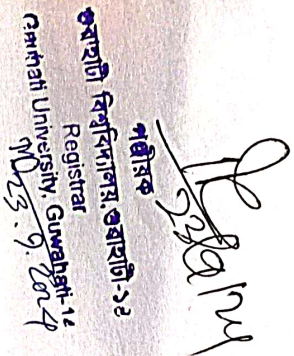 পঞ্জীয়ক
গুৱাহাটী বিশ্ববিদ্যালয়, গুৱাহাটী-১৪
Registrar
Gauhati University, Guwahati-14
23.9.2024